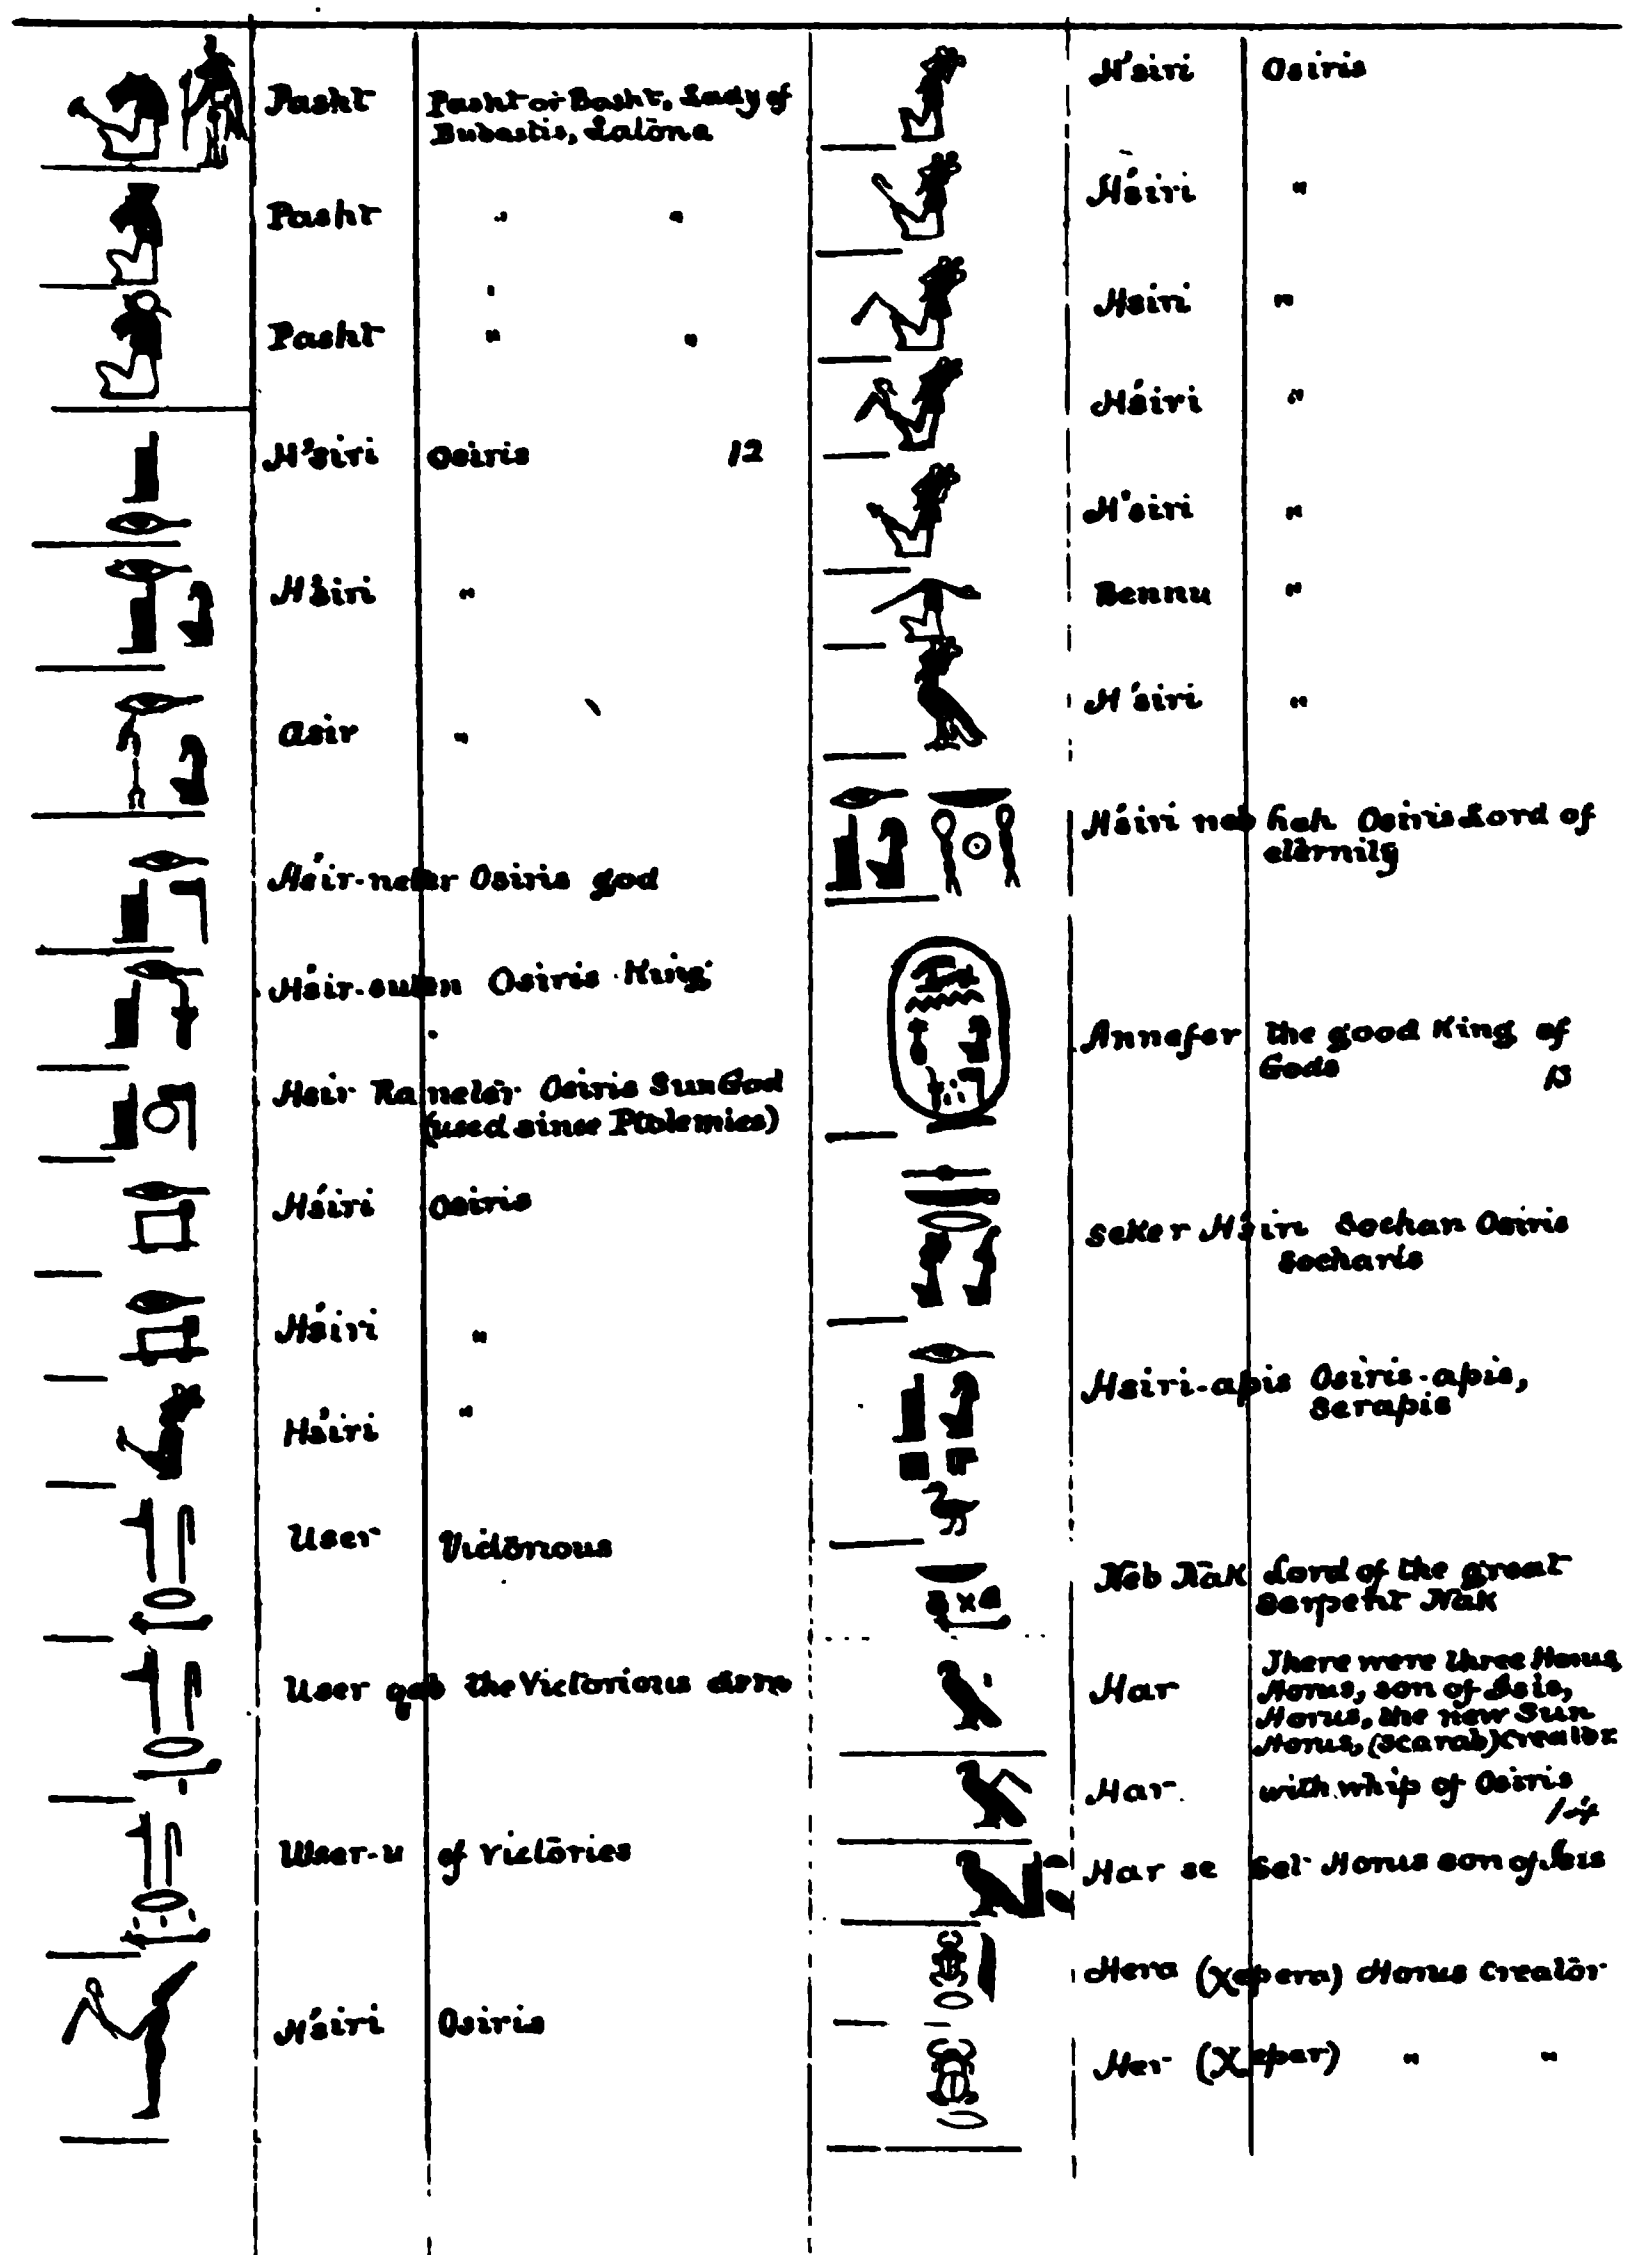 Pasht Pasht or Basht, Lady of
Bubastis, Latōna
Pasht " "
Pasht " "
H'siri Osiris 12
H'siri "
Asir "
H'sir-neter Osiris god
H'sir-suten Osiris King
Hsir Ra neter Osiris Sun God
(used since Ptolemies)
H'siri Osiris
H'siri "
H'siri "
User Victōrious
User qab the Victorious arm
User-u of victōries
H'siri Osiris
H'siri Osiris
H'siri "
Hsiri "
H'siri "
H'siri "
Bennu "
H'siri "
H'siri neb heh Osiris Lord of
eternity
Annefer the good King of
Gods 13
Seker H'siri Sochan Osiris
Socharis
Hsiri-apis Osiris-apis,
Serapis
Neb Nak Lord of the great
serpent Nak
Har There were three Horus,
Horus, son of Isis,
Horus, the new Sun
Horus, (scarab) Creator
Har with whip of Osiris
14
Har se Set Horus son of Isis
Hera (χepera) Horus Creatōr
Her (χepar) " "